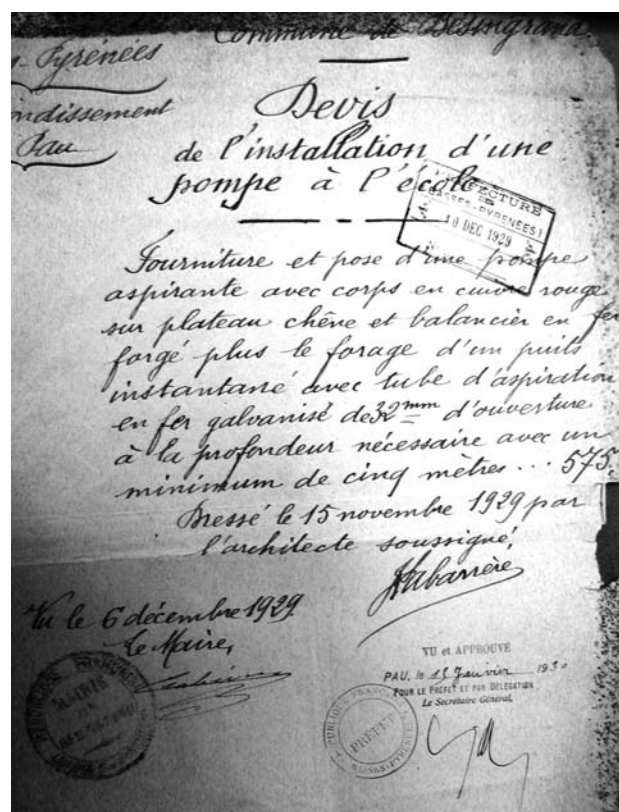 Commune de Bésingrand
s-Pyrénées
ndissement
Pau
Devis
de l'installation d'une
pompe à l'école
PRÉFECTURE
DES
(BASSES-PYRÉNÉES)
10 DEC 1929
Fourniture et pose d'une pompe
aspirante avec corps en cuivre rouge
sur plateau chêne et balancier en fer
forgé plus le forage d'un puits
instantané avec tube d'aspiration
en fer galvanisé de 32 mm d'ouverture
à la profondeur nécessaire avec un
minimum de cinq mètres ... 575
Dressé le 15 novembre 1929 par
l'architecte soussigné,
Labarrère
Vu le 6 décembre 1929
Le Maire,
MAIRIE
VU et APPROUVÉ
PAU, le 15 Janvier 1930
POUR LE PRÉFET ET PAR DÉLÉGATION
Le Secrétaire Général,
PRÉFET